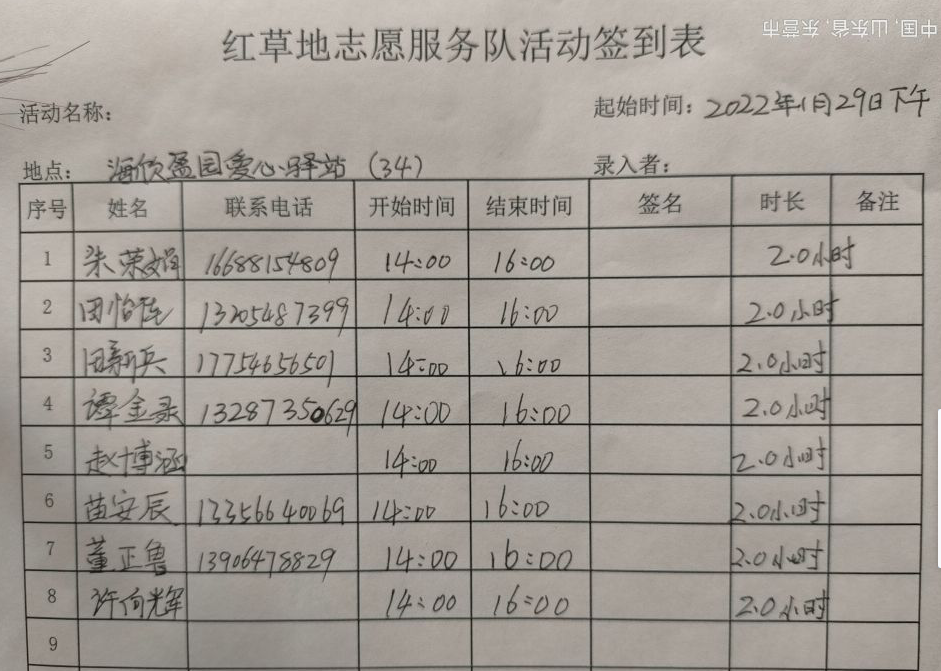 中国, 山东省, 东营市
红草地志愿服务队活动签到表
活动名称: 起始时间: 2022年1月29日下午
地点: 海欣盈园爱心驿站 (34) 录入者:
序号 姓名 联系电话 开始时间 结束时间 签名 时长 备注
1 朱荣娟 16688154809 14:00 16:00 2.0小时
2 田怡 13205487399 14:00 16:00 2.0小时
3 田新兵 17754656501 14:00 16:00 2.0小时
4 谭金录 13287350629 14:00 16:00 2.0小时
5 赵博涵 14:00 16:00 2.0小时
6 苗安辰 13356640069 14:00 16:00 2.0小时
7 董正鲁 13906478829 14:00 16:00 2.0小时
8 许向辉 14:00 16:00 2.0小时
9